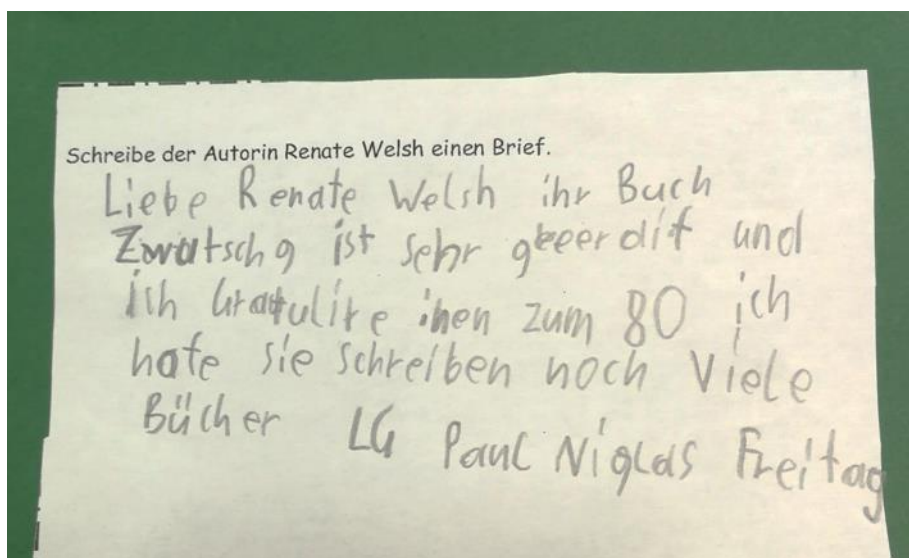 Schreibe der Autorin Renate Welsh einen Brief.
Liebe Renate Welsh ihr Buch
Zwatschg ist sehr und
ich Gratulire ihnen zum 80 ich
hofe sie schreiben noch Viele
Bücher LG Paul Niglas Freitag